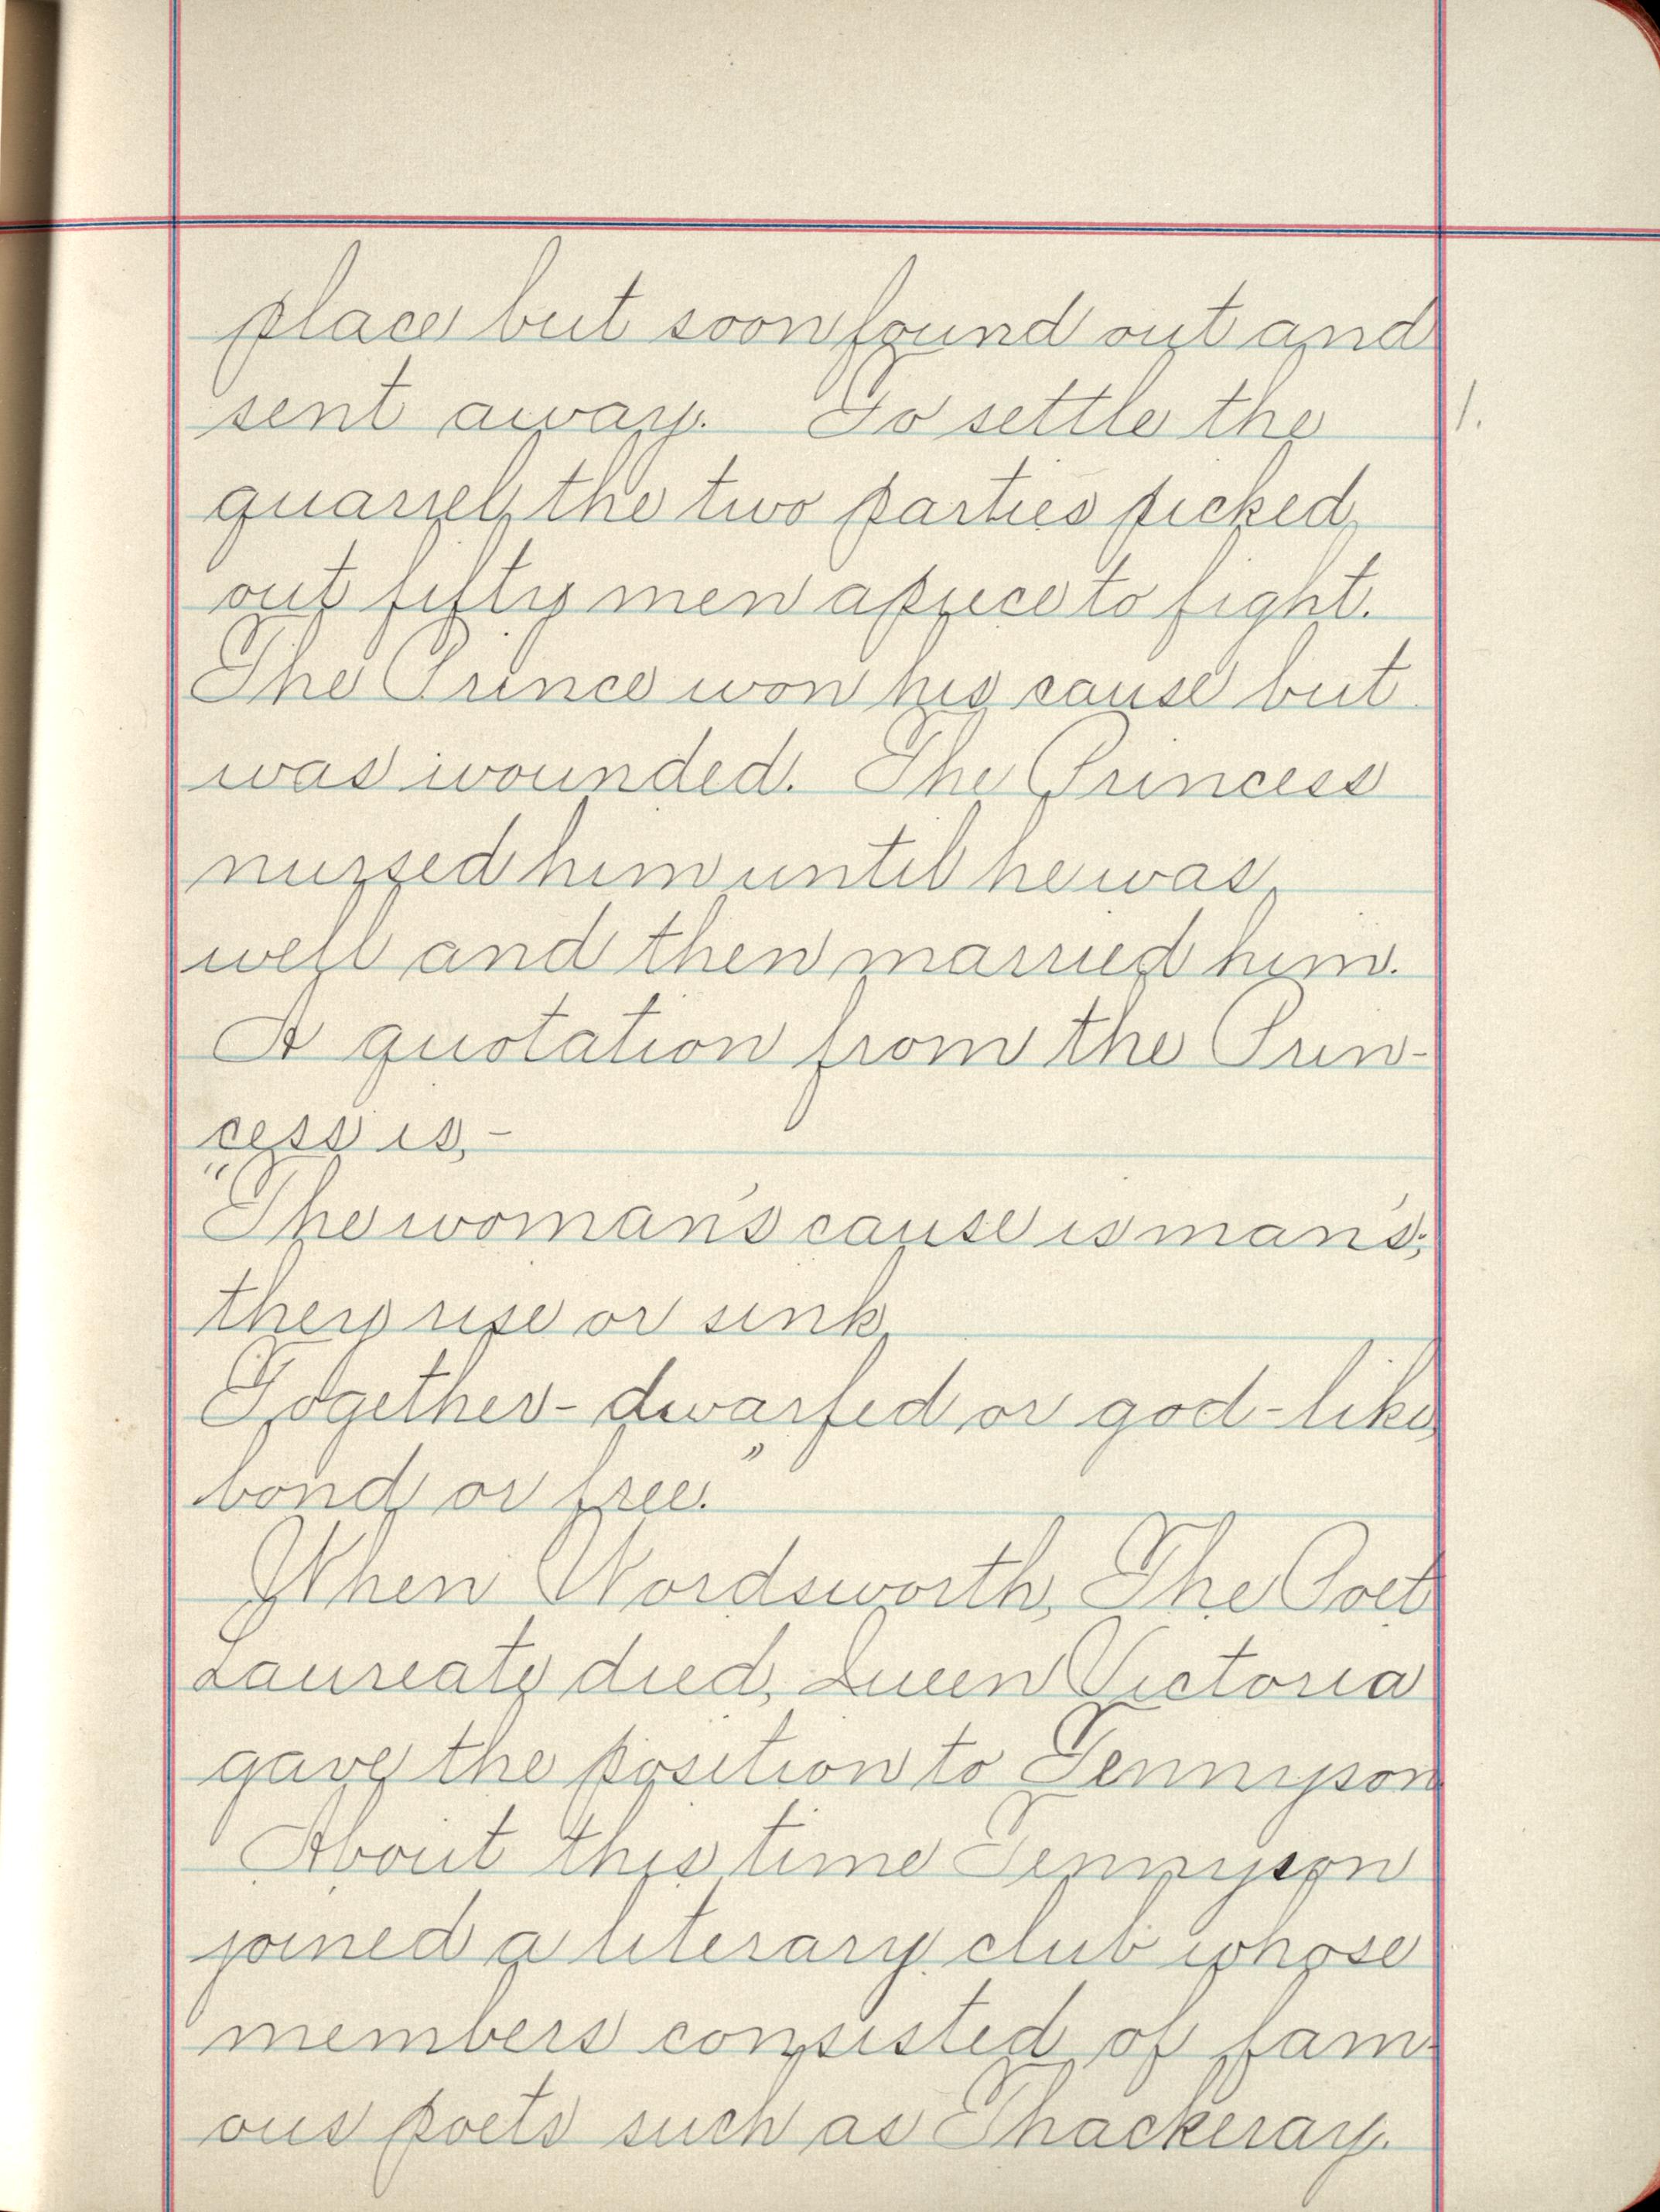 place but soon found out and
sent away. To settle the 1.
quarrel, the two parties picked
out fifty men apiece to fight.
The Prince won his cause but
was wounded. The Princess
nursed him until he was
well and then married him.
A quotation from the Prin-
cess is,-
"The woman's cause is man's;
they rise or sink
Together - dwarfed or god-like,
bond or free."
When Wordsworth, The Poet
Laureate died, Queen Victoria
gave the position to Tennyson
About this time Tennyson
joined a literary club whose
members consisted of fam-
ous poets such as Thackeray.